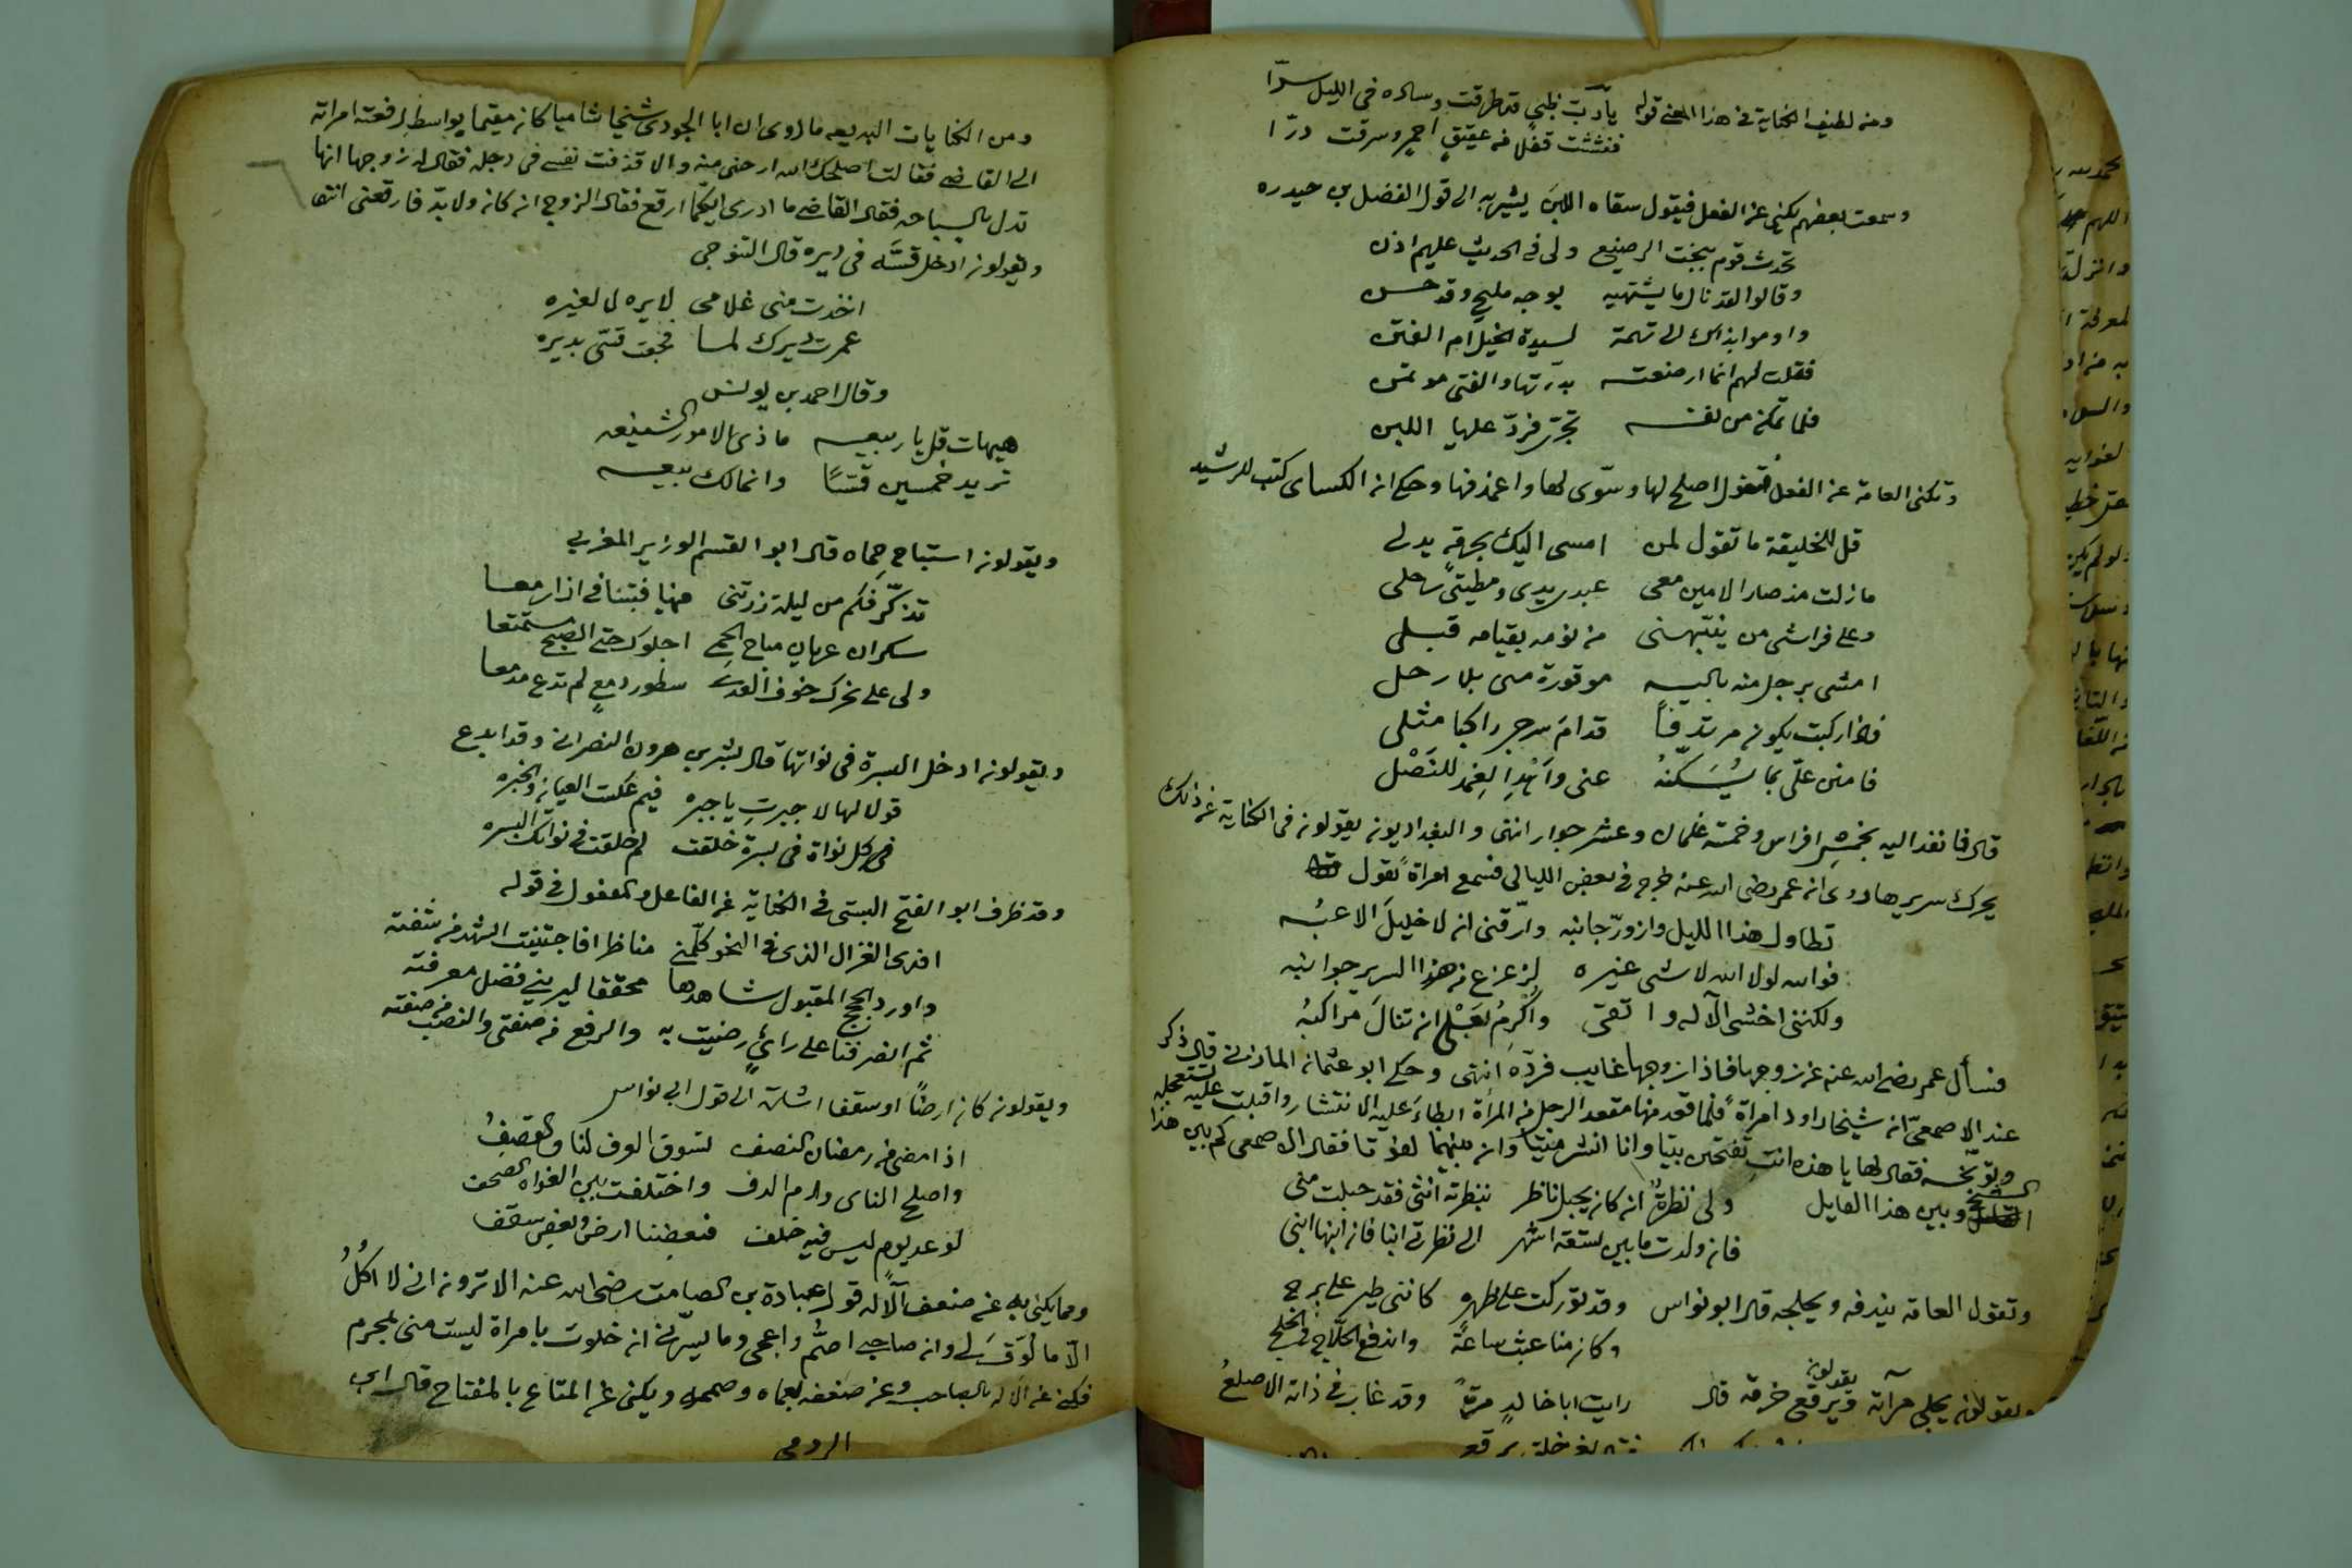 ومن لطيف الكناية في هذا المعنى قوله يا رب ظبي قد طرقت وساده في الليل سرّا
ففششت قفلا من عقيق احمر وسرقت درّا
وسمعت بعضهم يكني عن الفعل فيقول سقاه اللبن يشير به الى قول الفضل بن حيدره
تحدث قوم ببخت الرضيع ولي في الحديث عليهم اذن
وقالوا لقد نال ما يشتهيه بوجه مليح وقد حسن
واوموا بذاك الى تهمة لسيدة الخيل ام الفتن
فقلت لهم انما ارضعته بدرتها والفتى موتمن
فلما تمكن من نفسه تجرّى فردّ عليها اللبن
وتكني العامة عن الفعل فتقول اصلح لها وسوّى لها واغمد فيها وحكي ان الكساى كتب للرشيد
قل للخليفة ما تقول لمن امسى اليك بحرمة يدلي
ما زلت مذ صار الامين معي عبدي يدي ومطيتي رحلي
وعلى فراشي من ينبّهني من نومه بقيامه قبلي
امشي برجل منه ثالثة موفورة مني بلا رحل
فاذا ركبت يكون مرتدفا قدام سرجي راكبا مثلي
فامنن عليّ بما يُسَكّنهُ عني واَهْدِ الغمد للنَصْل
قال فانفذ اليه بخمسة افراس وخمسة غلمان وعشر جوار انتهى والبغداديون يقولون في الكناية عن ذلك
يحرك سريرها روى ان عمر رضي الله عنه خرج في بعض الليالي فسمع امراة تقول
تطاول هذا الليل وازورّ جانبه وارّقني ان لا خليلَ الاعبُه
فوالله لولا الله لا شي غيره لزعزع من هذا السرير جوانبه
ولكنني اخشى الآله واتقي واُكرِمُ بَعْلي ان تنالَ مراكبُه
فسأل عمر رضي الله عنه عن زوجها فاذا زوجها غايب فردّه انتهى وحكى ابو عثمان المازني قال ذكر
عند الاصمعيّ ان شيخا راود امراة فلما قعد منها مقعد الرجل من المرأة ابطاءَ عليه الانتشار واقبلت عليه تستعجله
وتوبّخه فقال لها يا هذه انتِ تفتحين بيتا وانا انشر ميتا وان بينهما لفوتا فقال الاصمعي كم بين هذا
الشيخ وبين هذا القايل ولي نظرةٌ ان كان يحبل ناظر بنظرته انثى فقد حبلت مني
فان ولدت ما بين لستة اشهر الى نظرتي ابنا فان ابنها ابني
وتقول العامة يندفه ويحلجه قال ابو نواس وقد تورّكت على ظهره كانني طير على برج
وكان منا عبث ساعة واندفع الحلّاج في الحلج
ويقولون يجلي مرآته ويقولون يرقع خرقه قال رايت ابا خالد مرّة وقد غاب في ذاته الاصلع
ومن الكنايات البديعه ما روى ان ابا الجودي شيخا شاميا كان مقيما بواسط رفعته امراته
الى القاضي فقالت اصلحك الله ارحني منه والا قذفت نفسي في دجله فقال له زوجها انها
تدل بالسباحه فقال القاضي ما ادرى ايكما ارقع فقال الزوج ان كان ولا بدّ فارقعني انتهى
ويقولون ادخل قسّه في ديره قال التنوخي
اخذت مني غلامي لايره لا لغيره
عمرت ديرك لما فجعت قسّي بديره
وقال احمد بن يونس
هيهات قل يا ربيعه ما ذي الامور الشنيعه
تريد خمسين قسّا وانما لك بيعه
ويقولون استباح حِماه قال ابو القسم الوزير المغربي
تذكّر فكم من ليلة زرتني فيها فبتنا في ازار معا
سكران عريان مباح الحمى اجلوك حتى الصبح مستمتعا
ولى على نحرك خوف العدى سطور دمع لم تدع مدمعا
ويقولون ادخل البسرة في نواتها قال بشر بن هرون النصراني وقد ابدع
قولا لها لا جبرتِ يا جبره فيم عكست العيان والخبره
في كل نواة في بسرة خلقت لم خلقت في نواتك البسره
وقد ظرف ابو الفتح البستي في الكناية عن الفاعل والمفعول في قوله
افدى الغزال الذي في النحو كلّمني مناظرا فاجتنيت الشهد من شفته
واورد الحجج المقبول شاهدها محققا ليريني فضل معرفته
ثم انصرفنا على رائٍ رضيت به والرفع من صفتي والنصب من صفته
ويقولون كان ارضًا او سقفا اشارة الى قول ابي نواس
اذا مضى من رمضان النصف تشوق الوف لنا والقصفُ
واصلح الناي ورم الدف واختلفت بين الغواه الصحف
لوعد يوم ليس فيه خلف فبعضنا ارض وبعض سقف
ومما يكنى به عن ضعف الآله قول عبادة بن الصامت رضي الله عنه الا ترون اني لا اكلُ
الّا ما لُوَقَ لي وان صاحبي اصمُّ واعمى وما يسرّني ان خلوت بامراة ليست مني بمحرم
فكنى عن الآله بالصاحب وعن ضعفه بعماه وصممه ويكنى عن المتاع بالمفتاح قال ابن
الرومي